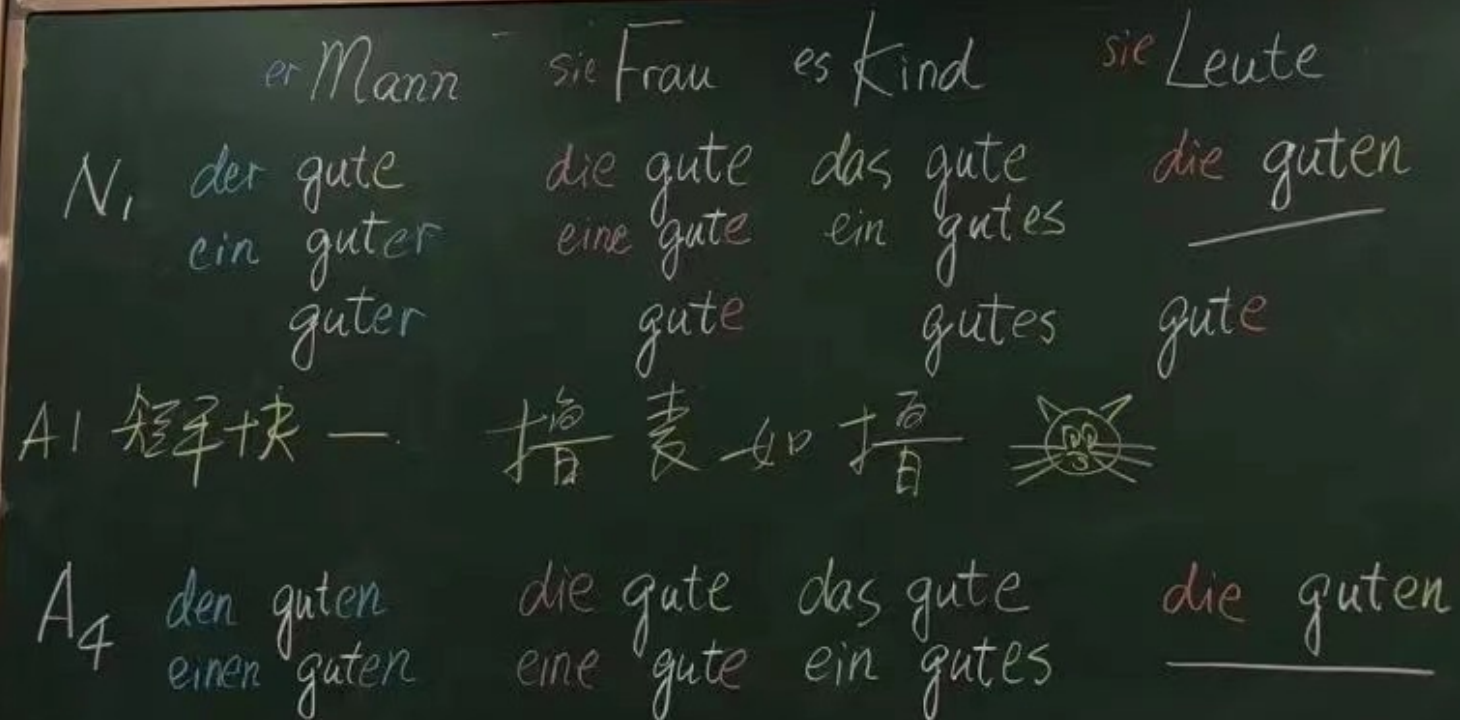 er Mann sie Frau es Kind sie Leute
N1 der gute die gute das gute die guten
ein guter eine gute ein gutes
guter gute gutes gute
A1 一 表 如
A4 den guten die gute das gute die guten
einen guten eine gute ein gutes